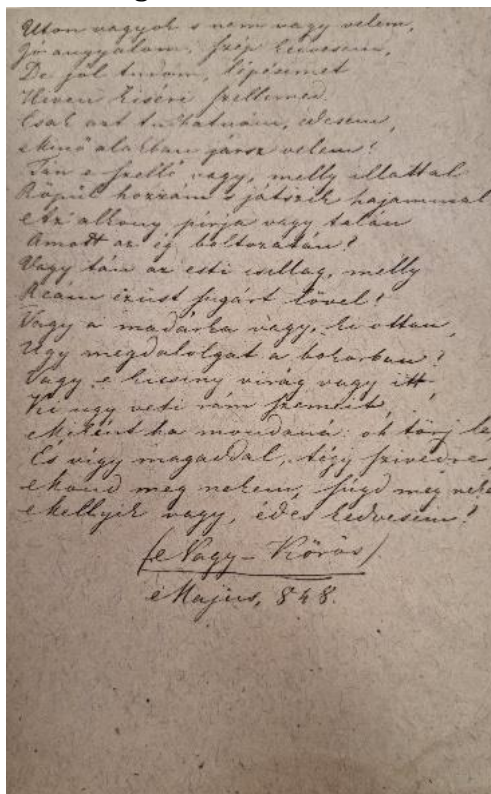 Uton vagyok s nem vagy velem,
Jó angyalom, szép kedvesem,
De jól tudom, lépésimet
Hiven kiséri szellemed.
Csak azt tudhatnám, édesem,
Minő alakban jársz velem?
Tán e szellő vagy, melly illattal
Röpül hozzám s játszik hajammal
Az alkony pirja vagy talán
Amott az ég boltozatán?
Vagy tán az esti csillag, melly
Reám ezüst sugárt lövel?
Vagy a madárka vagy, ki ottan,
Ugy megdalolgat a bokorban?
Vagy e kicsiny virág vagy itt
Ki ugy veti rám szemeit,
Miként ha mondaná: oh törj le,
És vigy magaddal, tégy szivedre,
Mond meg nekem, súgd meg neke
Mellyik vagy, édes kedvesem?
(Nagy-Körös)
Majus, 848.